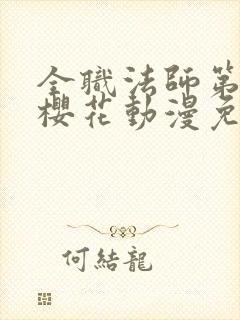 全職法師第
櫻花動漫免
何結龍